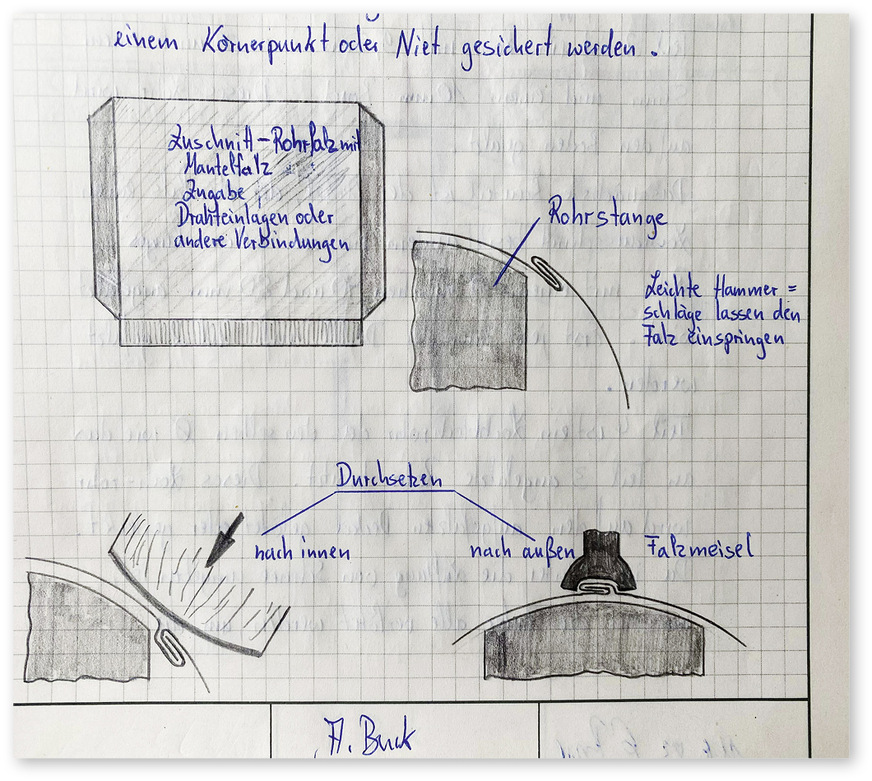 einem Körnerpunkt oder Niet gesichert werden.
Zuschnitt-Rohrfalz mit
Mantelfalz
Zugabe
Drahteinlagen oder
andere Verbindungen
Rohrstange
Leichte Hammer=
schläge lassen den
Falz einspringen
Durchsetzen
nach innen
nach außen
Falzmeisel
A. Buck